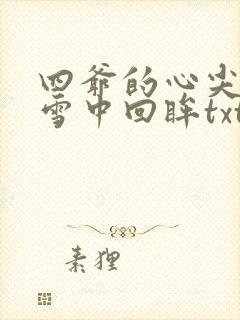 四爷的心尖
雪中回眸txt
素狸